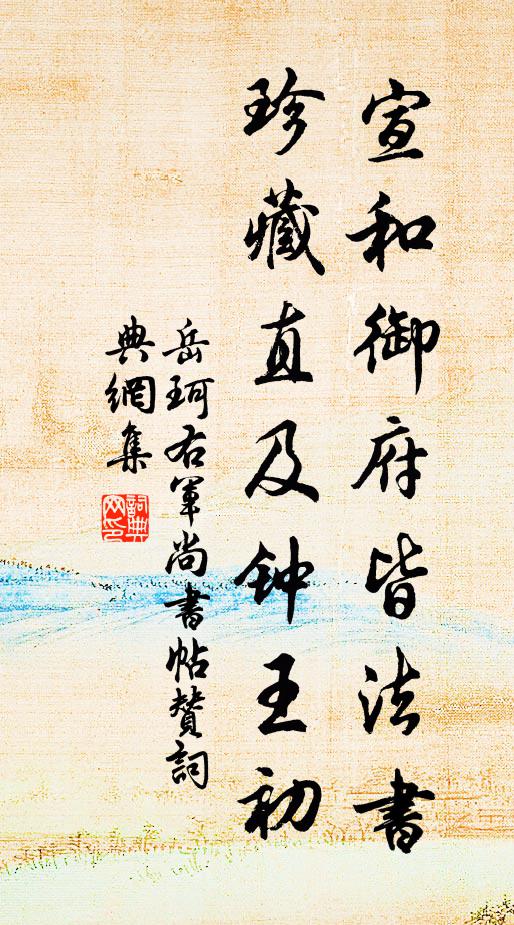 宣和御府皆法書
珍藏直及钟王初
岳珂右軍尚書帖贊詞
典網集
詞典網印